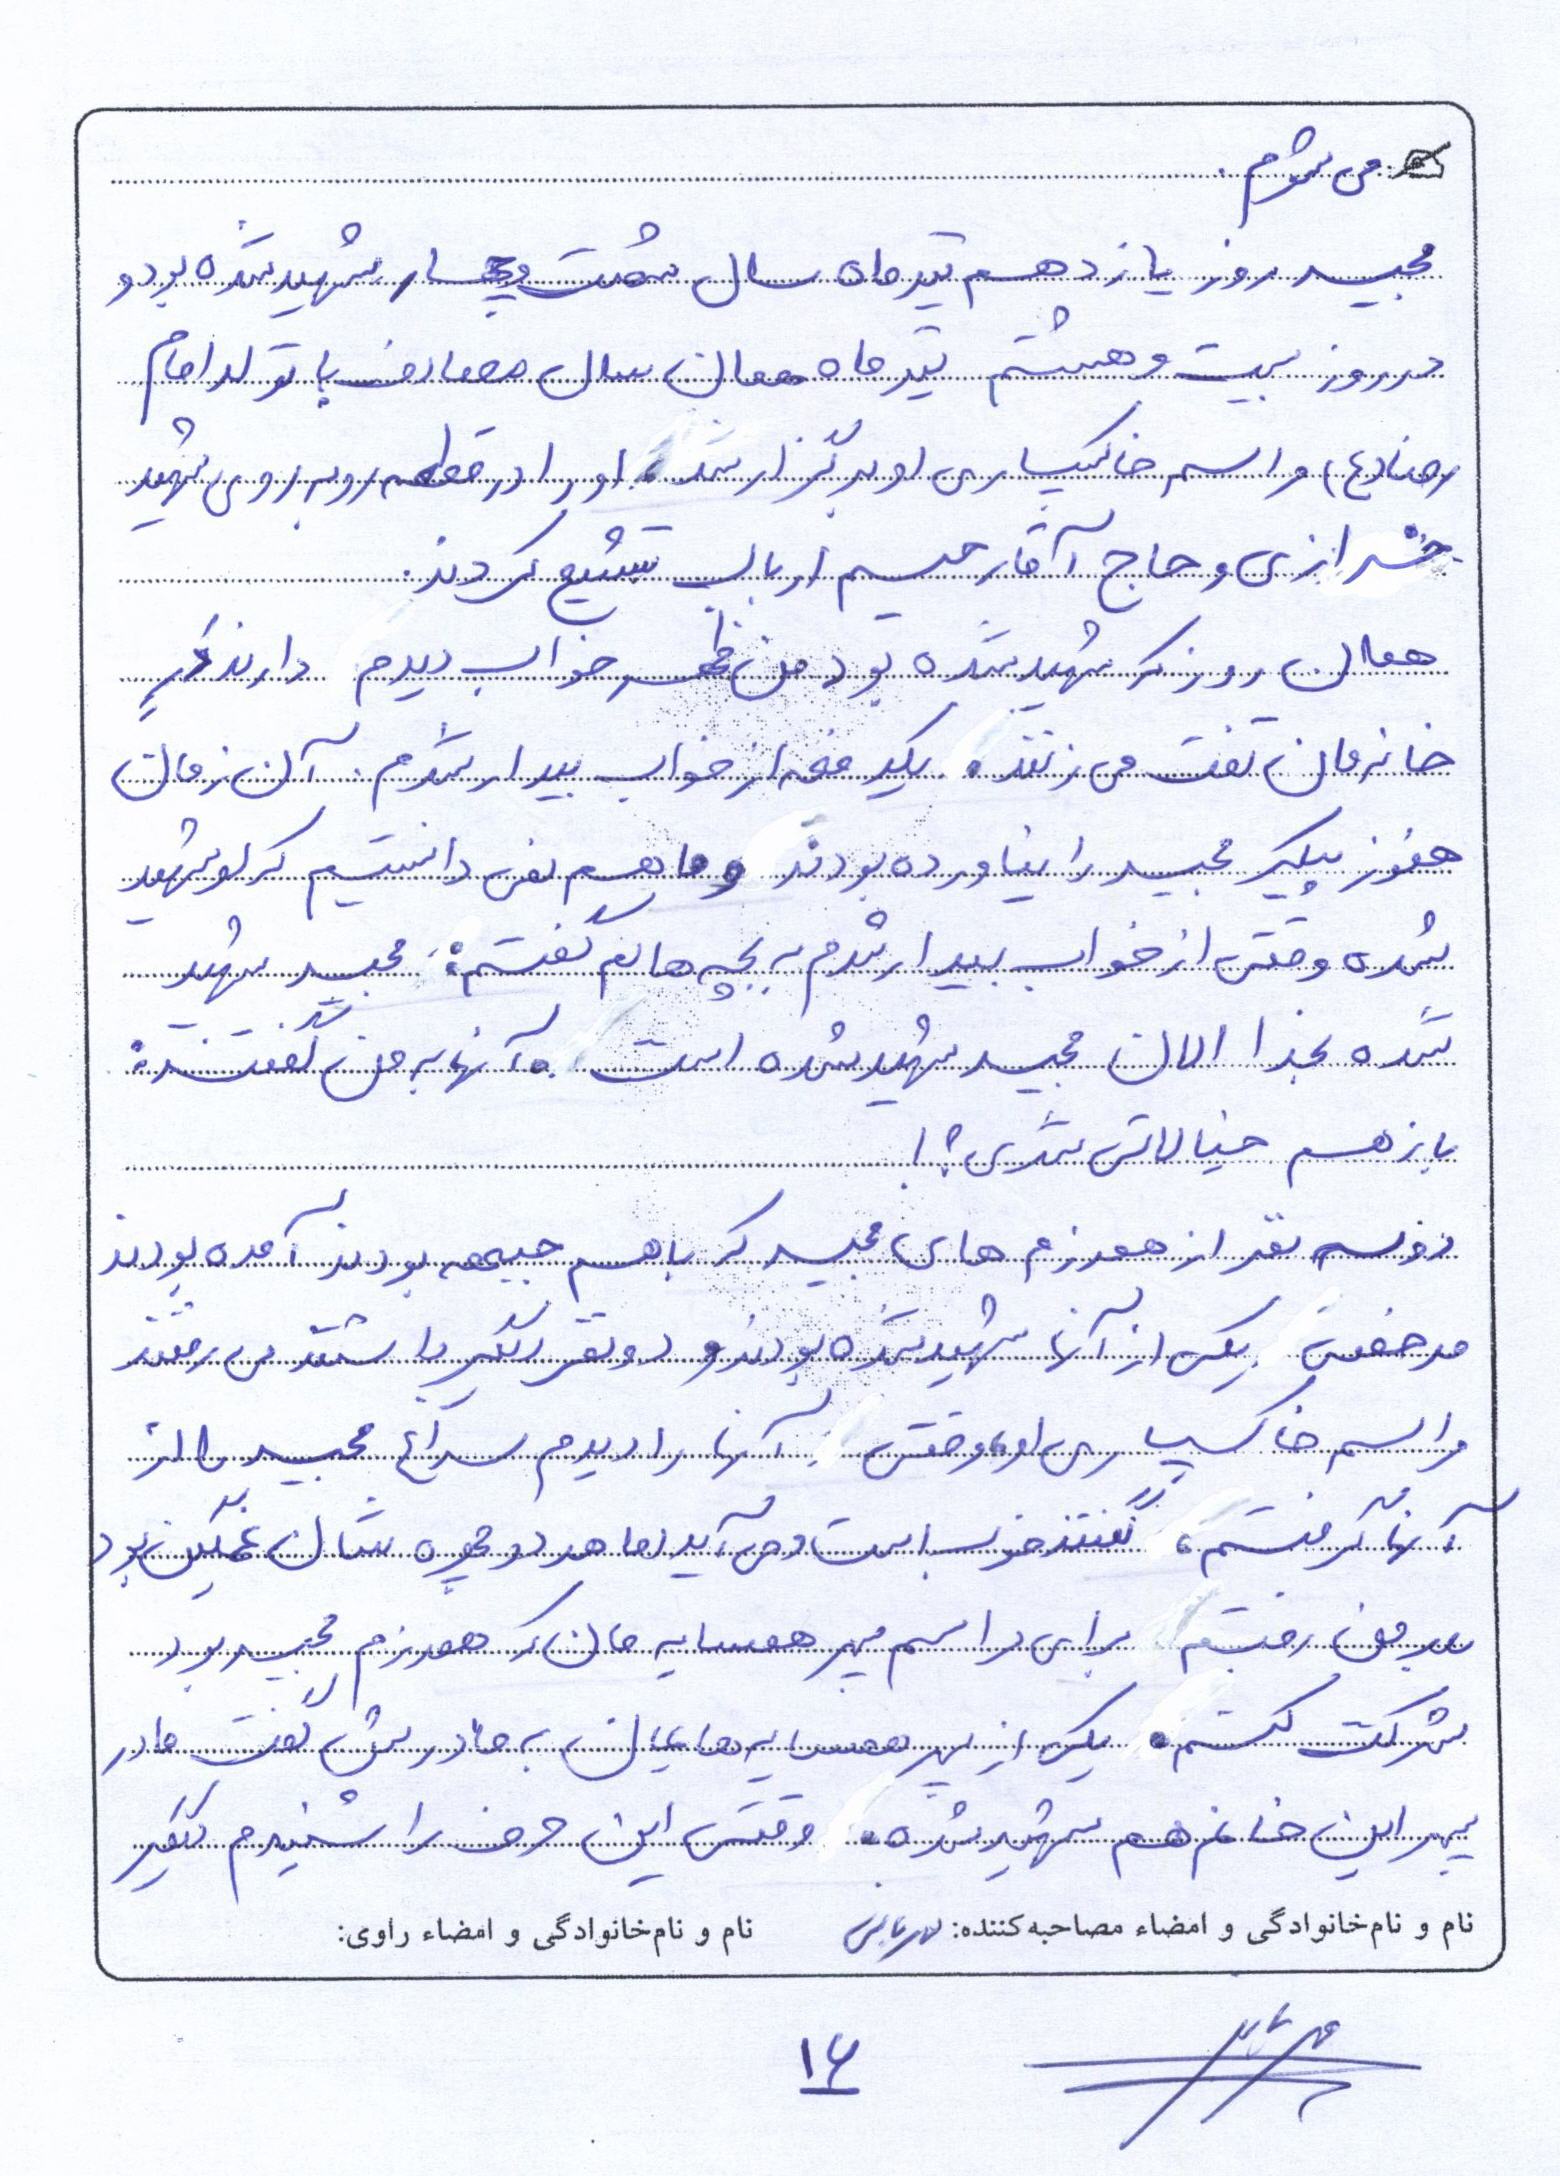 می شوم.
مجید روز یازدهم تیرماه سال شصت و چهار شهید شده بود و
در روز بیست و هشتم تیر ماه همان سال مصادف با تولد امام
رضا (ع) مراسم خاکسپاری او برگزار شد. او را در قطعه روبه روی شهید
خرازی و حاج آقا رحیم ارباب تشییع کردند.
همان روز که شهید شده بود من ظهر خواب دیدم دارند درِ
خانه مان تفت می زنند. یکدفعه از خواب بیدار شدم. آن زمان
هنوز پیکر مجید را نیاورده بودند و ما هم نمی دانستیم که او شهید
شده وقتی از خواب بیدار شدم به بچه هایم گفتم: مجید شهید
شده بخدا الان مجید شهید شده است. آنها به من گفتند:
باز هم خیالاتی شدی؟!
دو سه نفر از همرزم های مجید که باهم جبهه بودند آمده بودند
مرخصی یکی از آنها شهید شده بودند و دو نفر دیگر داشتند می رفتند
مراسم خاکسپاری او، وقتی آنها را دیدم سراغ مجید را از
آنها گرفتم، گفتند خوب است و می آید اما هر دو چهره شان غمگین بود
من رفتم برای مراسم پسر همسایه مان که همرزم مجید بود
شرکت کنم. یکی از پسر همسایه هایمان به مادرش گفت مادر
پسر این خانم هم شهید شده. وقتی این حرف را شنیدم دیگر
نام و نام‌خانوادگی و امضاء مصاحبه‌کننده: نام و نام‌خانوادگی و امضاء راوی:
۱۶